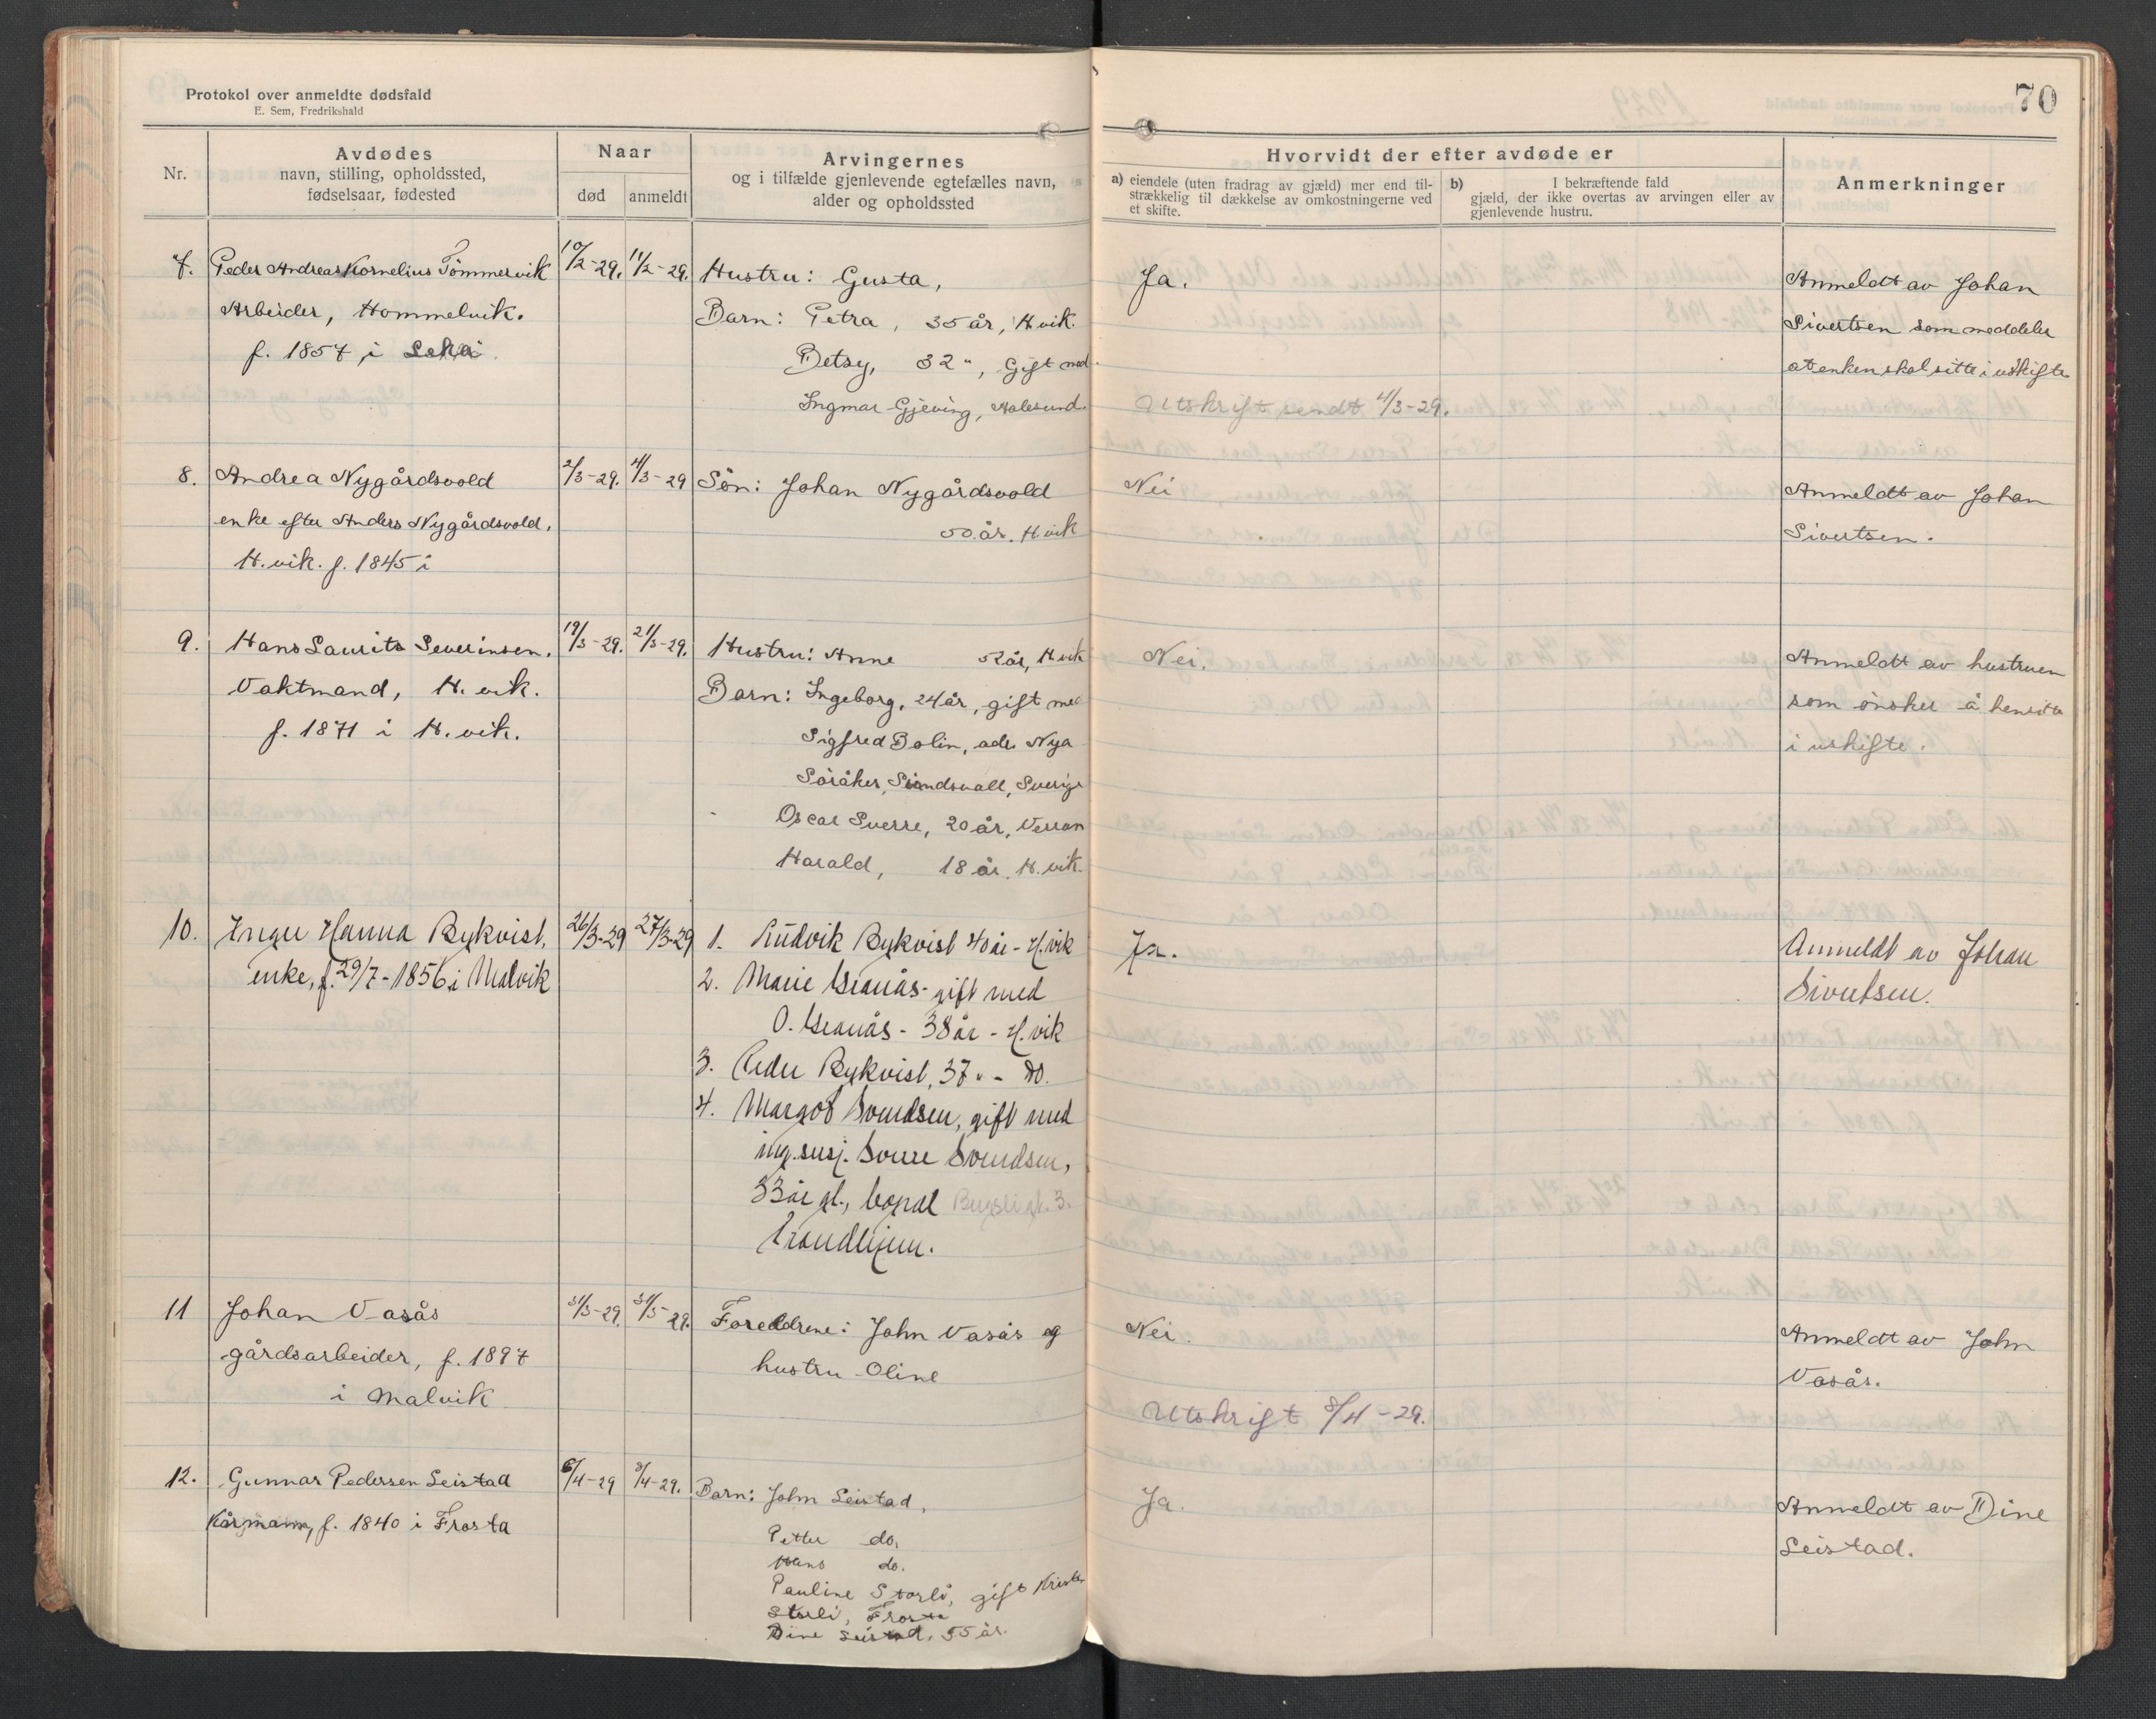 Protokol over anmeldte dødsfald
E. Sem, Fredrikshald
70
Nr.
Avdødes
navn, stilling, opholdssted,
fødselsaar, fødested
Naar
død
anmeldt
Arvingernes
og i tilfælde gjenlevende egtefælles navn,
alder og opholdssted
Hvorvidt der efter avdøde er
a) eiendele (uten fradrag av gjæld) mer end til-
strækkelig til dækkelse av omkostningerne ved
et skifte.
b) I bekræftende fald
gjæld, der ikke overtas av arvingen eller av
gjenlevende hustru.
Anmerkninger
7. Peder Andreas Kornelius Tömmervik
Arbeider, Hommelvik.
f. 1857 i Leka
10/2-29. 11/2-29.
Hustru: Gusta,
Barn: Petra, 35 år, H.vik.
Betsy, 32 ", Gift med
Ingmar Gjeving, Aalesund.
Ja.
Utskrift sendt 4/3-29.
Anmeldt av Johan
Sivertsen som meddeler
at enken skal sitte i uskifte
8. Andrea Nygårdsvold
enke efter Anders Nygårdsvold,
H.vik. f. 1845 i
2/3-29. 4/3-29
Sön: Johan Nygårdsvold
50 år. H.vik
Nei
Anmeldt av Johan
Sivertsen.
9. Hans Laurits Severinsen.
Vaktmand, H.vik.
f. 1871 i H.vik.
19/3-29. 21/3-29.
Hustru: Anne 52 år, H.vik
Barn: Ingeborg, 24 år, gift med
Sigfred Bolin, adr. Nya
Söråker, Sundsvall, Sverige
Oscar Sverre, 20 år, Verran
Harald, 18 år, H.vik.
Nei.
Anmeldt av hustruen
som ønsker å hensitte
i uskifte.
10. Inger Hanna Rykvist,
enke, f. 29/7-1856 i Malvik
26/3-29 27/3-29
1. Ludvik Rykvist 40 år - H.vik
2. Marie Granås - gift med
O. Granås - 38 år - H.vik
3. Peder Rykvist, 37 " - do.
4. Margot Svendsen, gift med
Sverre Svendsen,
33 år gl., bopæl
Trondhjem.
Ja.
Anmeldt av Johan
Sivertsen.
11 Johan Vasås
gårdsarbeider, f. 1897
i Malvik
31/3-29.
29.
Foreldrene: John Vasås og
hustru Oline
Nei.
Utskrift 8/4-29.
Anmeldt av John
Vasås.
12. Gunnar Pedersen Leistad
Kårmann, f. 1840 i Frosta
6/4-29 8/4-29.
Barn: John Leistad,
Petter do.
Hans do.
Pauline Storli, gift
Storli, Frosta
Dine Leistad, 55 år.
Ja.
Anmeldt av Dine
Leistad.